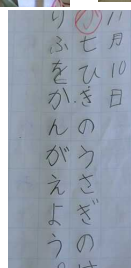 11月10日
七ひきのうさぎの
りふをかんがえよう。